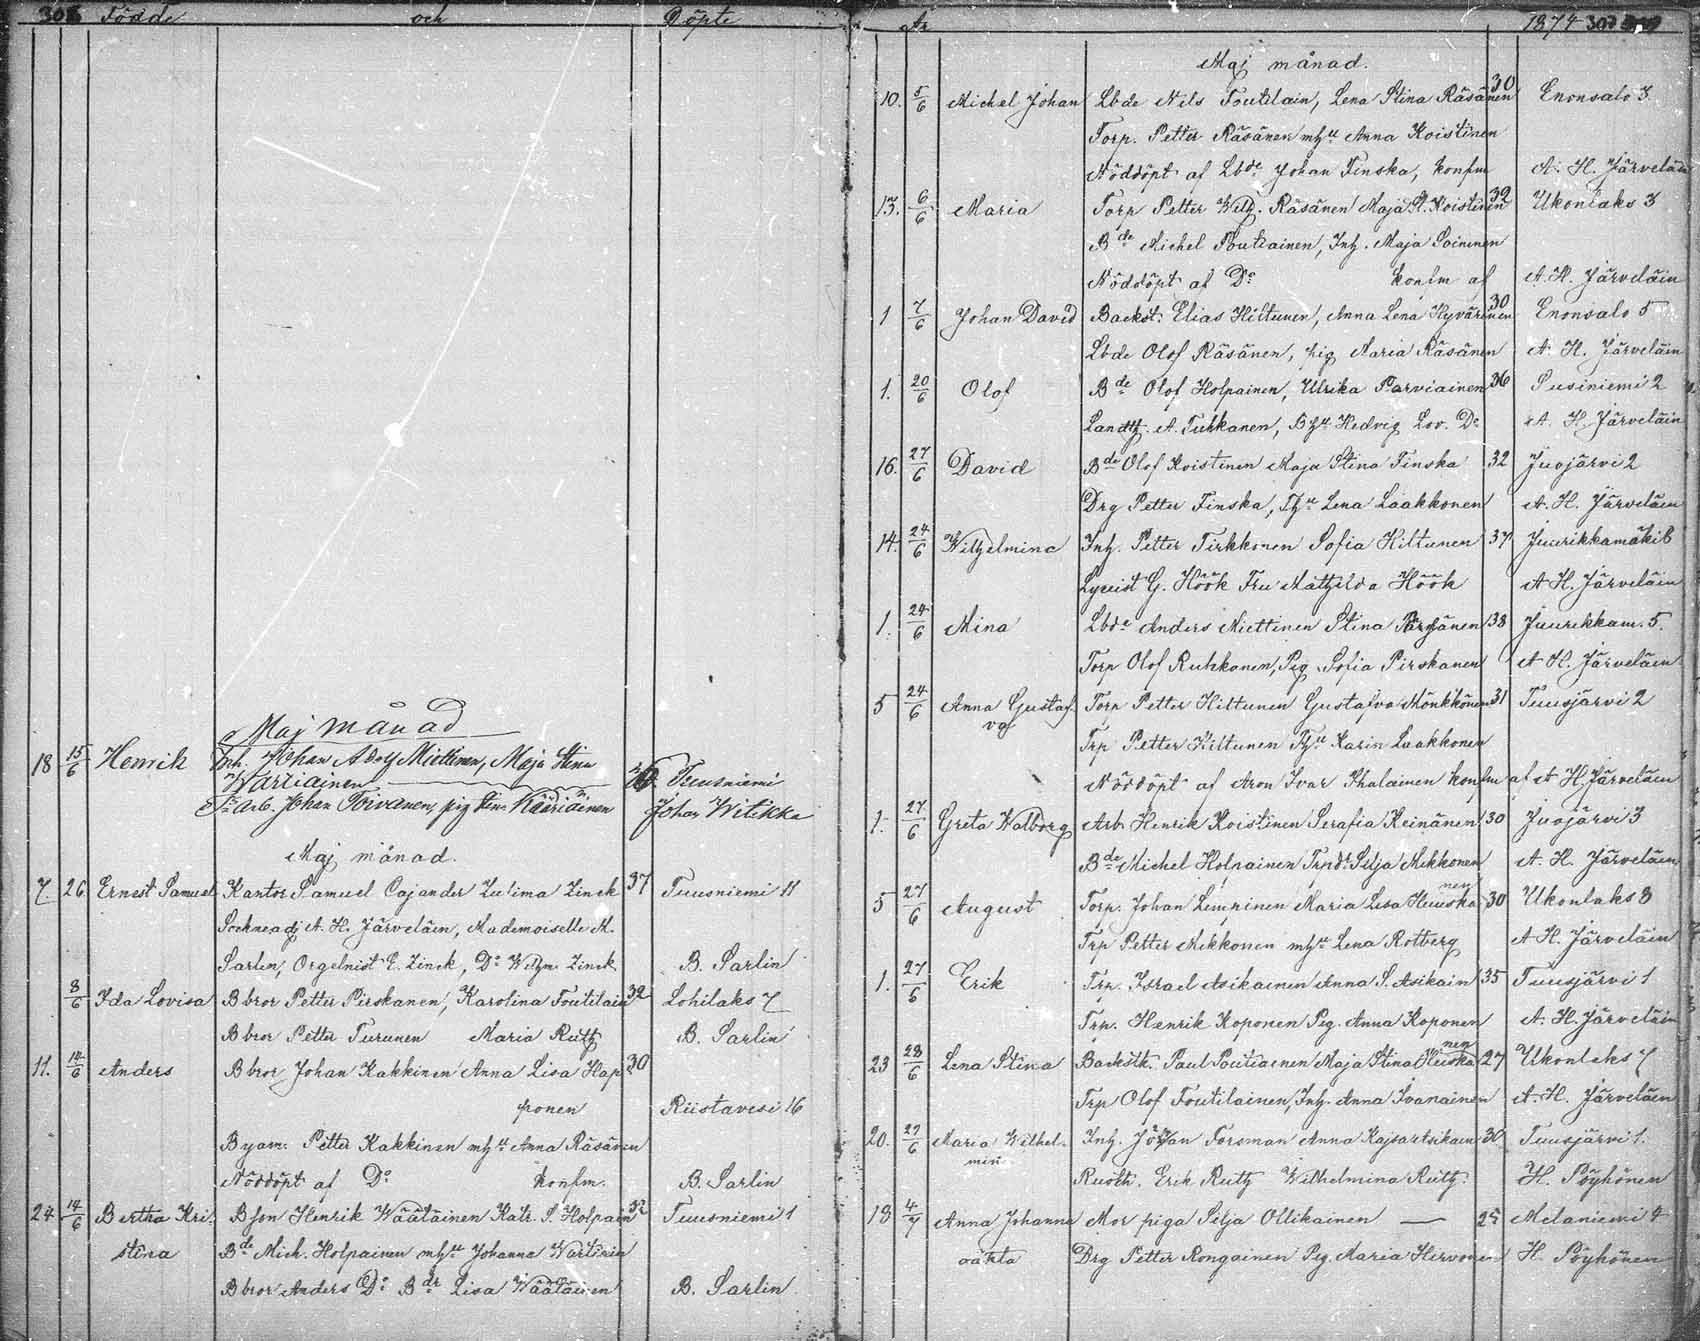 306 Födde och Döpte
Maj månad
18 15/6 Henrik Inh. Johan Adolf Miettinen, Maja Stina
Wartiainen Tuusniemi
Arb. Johan Toivanen, pig Stina Kääriäinen Johan Witikka
Maj månad.
7. 26 Ernest Samuel Kantor Samuel Cajander Zulima Zinck 37 Tuusniemi 11
Sockneadj A. H. Järveläin, Mademoiselle M.
Sarlin, Orgelnist E. Zinck, Do Wilhm. Zinck B. Sarlin
8/6 Ida Lovisa Bbror Petter Pirskanen, Karolina Toutilain 32 Lohilaks 7
Bbror Petter Turunen Maria Ruth B. Sarlin
11. 14/6 Anders Bbror Johan Kakkinen Anna Lisa Hap 30
ponen Riistavesi 16
Byam. Petter Kakkinen mhu Anna Räsänen
Nöddöpt af Do konfm. B. Sarlin
24 14/6 Bertha Kri- Bson Henrik Wäätäinen Katr. S. Holpain 32 Tuusniemi 1
stina Bde Mich. Holpainen mhu Johanna Wartinin
Bbror Anders Do Bdr Lisa Wäätäinen B. Sarlin
År 1874 307
Maj månad.
10. 5/6 Michel Johan Lbde Nils Toutilain, Lena Stina Räsänen 30 Enonsalo 3
Torp. Petter Räsänen mhu Anna Koistinen
Nöddöpt af Lbde Johan Finska, konfm A. H. Järveläin
13. 6/6 Maria Torp Petter Wilh. Räsänen Maja St. Koistinen 32 Ukonlaks 3
Bde Michel Poutiainen, Inh. Maja Soininen
Nöddöpt af Do konfm af A. H. Järveläin
1 7/6 Johan David Backst. Elias Hiltunen, Anna Lena Hyvärinen 30 Enonsalo 5
Lbde Olof Räsänen, pig Maria Räsänen A. H. Järveläin
1. 20/6 Olof Bde Olof Holpainen, Ulrika Parviainen 36 Susiniemi 2
Landth. A. Tuhkanen, Bhu Hedvig Lov. Do A. H. Järveläin
16. 27/6 David Bde Olof Koistinen Maja Stina Finska 32 Juojärvi 2
Drg Petter Finska, Thu Lena Laakkonen A. H. Järveläin
14. 24/6 Wilhelmina Inh. Petter Tirkkonen Sofia Hiltunen 37 Juurikkamäki 8
G. Höök Fru Mathilda Höök A H. Järveläin
1. 24/6 Mina Lbde Anders Miettinen Stina 38 Juurikkam. 5.
Torp Olof Ruhkanen, Pig. Sofia Pirskanen A H. Järveläin
5 24/6 Anna Gustaf- Torp Petter Hiltunen Gustafva Mönkkönen 31 Tuusjärvi 2
va Trp Petter Hiltunen Thu Karin Laakkonen
Nöddöpt af Aron Ivar Ihalainen konfm af A H. Järveläin
1. 27/6 Greta Walborg Arb Henrik Koistinen Serafia Keinänen 30 Juojärvi 3
Bde Michel Holpainen Trpdr Silja Mikkonen A. H. Järveläin
5 27/6 August Torp. Johan Lempinen Maria Lisa Huuskanen 30 Ukonlaks 8
Trp Petter Mikkonen mhu Lena Rotberg A H. Järveläin
1. 27/6 Erik Trp. Israel Asikainen Anna S. Asikain 35 Tuusjärvi 1
Trp. Henrik Koponen Pig. Anna Koponen A. H. Järveläin
23 28/6 Lena Stina Backstk. Paul Poutiainen Maja Stina Huuskanen 27 Ukonlaks 7
Trp Olof Toutilainen, Inh. Anna Ivanainen A. H. Järveläin
20. 27/6 Maria Wilhel- Inh. Johan Forsman Anna Kajsa Asikain 30 Tuusjärvi 1.
min Rusth. Erik Ruth Wilhelmina Ruth. H. Pöyhönen
18 4/7 Anna Johanna Mor piga Silja Ollikainen — 25 Melaniemi 4
oäkta Drg Petter Rongainen Pig Maria Hirvonen H. Pöyhönen